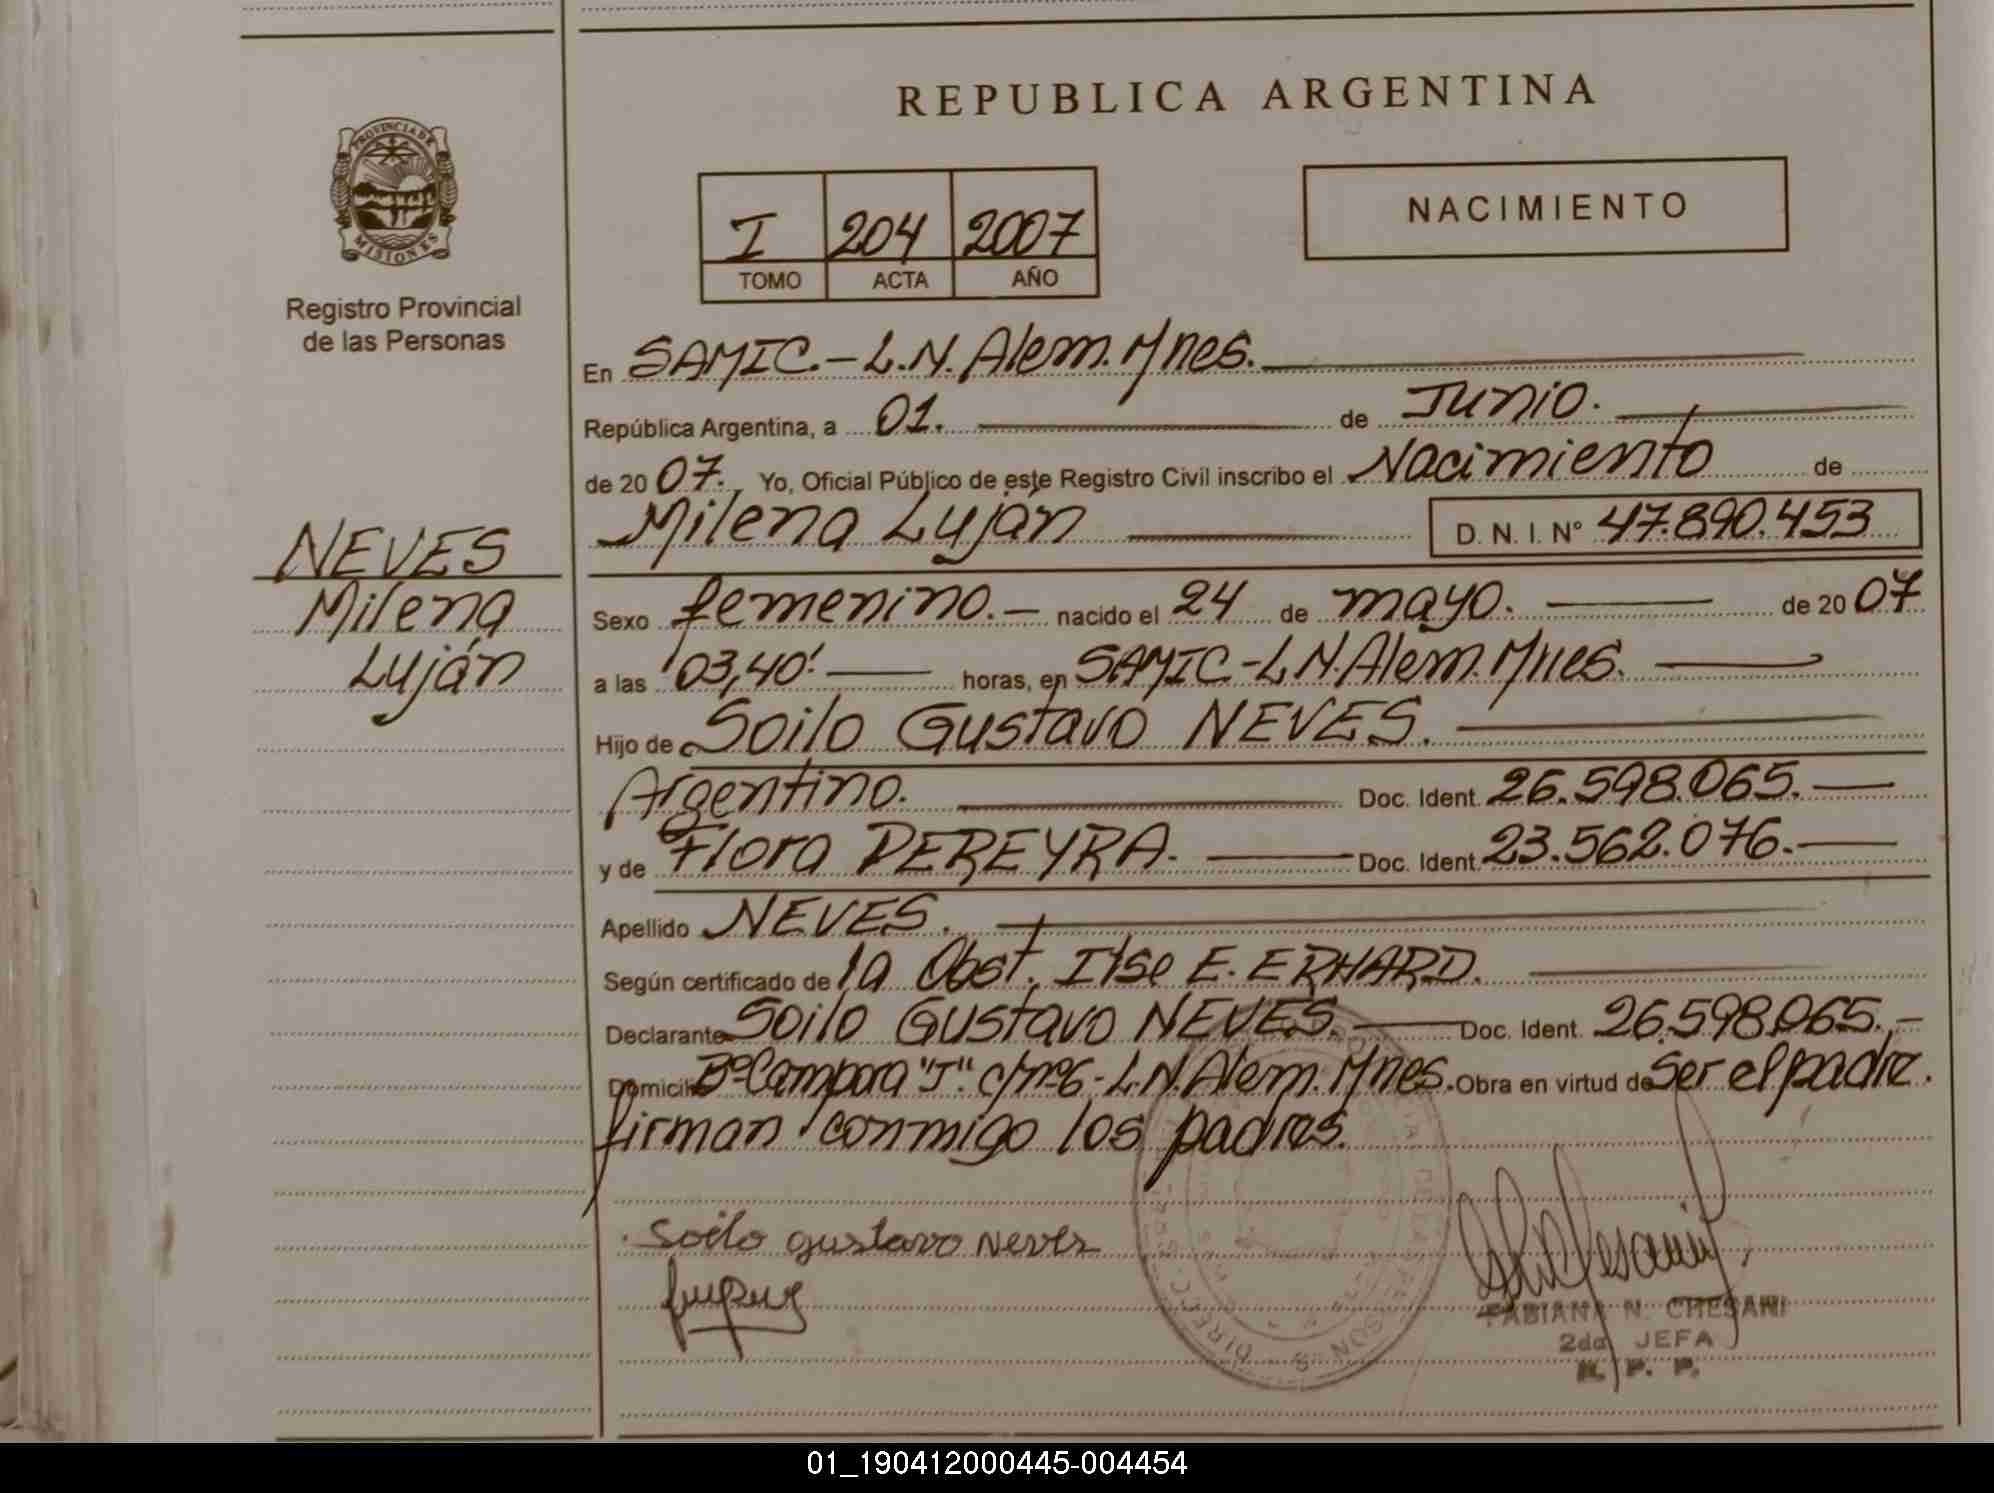 REPUBLICA ARGENTINA
PROVINCIA DE
MISIONES
Registro Provincial
de las Personas
I 204 2007
TOMO ACTA AÑO
NACIMIENTO
En SAMIC.-L.N.Alem.Mnes.
República Argentina, a 01. de Junio.
de 2007. Yo, Oficial Público de este Registro Civil inscribo el Nacimiento de
Milena Luján D. N. I. N° 47.890.453
NEVES
Milena
Luján
Sexo femenino.- nacido el 24 de mayo. de 2007
a las 03,40! horas, en SAMIC-L.N.Alem.Mnes.
Hijo de Soilo Gustavo NEVES.
Argentino. Doc. Ident. 26.598.065.-
y de Flora PEREYRA. Doc. Ident. 23.562.076.-
Apellido NEVES.
Según certificado de la Obst. Ilse E. ERHARD.
Declarante Soilo Gustavo NEVES. Doc. Ident. 26.598.065.-
Domicilio B° Campora "J". c/n°6-L.N.Alem.Mnes. Obra en virtud de ser el padre.
firman conmigo los padres.
Soilo gustavo Neves
FABIANA N. CHESANI
2da JEFA
R. P. P.
01_190412000445-004454